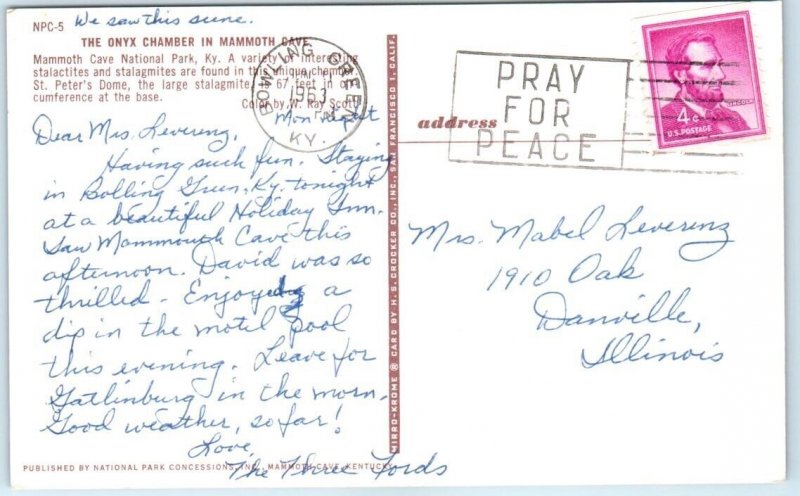 We saw this scene.
NPC-5
THE ONYX CHAMBER IN MAMMOTH CAVE
Mammoth Cave National Park, Ky. A variety of interesting
stalactites and stalagmites are found in this unique chamber.
St. Peter's Dome, the large stalagmite, is 67 feet in cir-
cumference at the base.
Color by W. Ray Scott
Mon night
Dear Mrs. Leverenz,
Having such fun. Staying
in Bolling Green, Ky. tonight
at a beautiful Holiday Inn.
Saw Mammouth Cave this
afternoon. David was so
thrilled. Enjoyed a
dip in the motel pool
this evening. Leave for
Gatlinburg in the morn.
Good weather, so far!
Love,
The Three Fords
PUBLISHED BY NATIONAL PARK CONCESSIONS, INC., MAMMOTH CAVE, KENTUCKY
MIRRO-KROME ® CARD BY H. S. CROCKER CO., INC., SAN FRANCISCO 1, CALIF.
BOWLING GREEN
JUN
1963
KY.
PRAY
FOR
PEACE
address
LINCOLN
4¢
U.S. POSTAGE
Mrs. Mabel Leverenz
1910 Oak
Danville,
Illinois